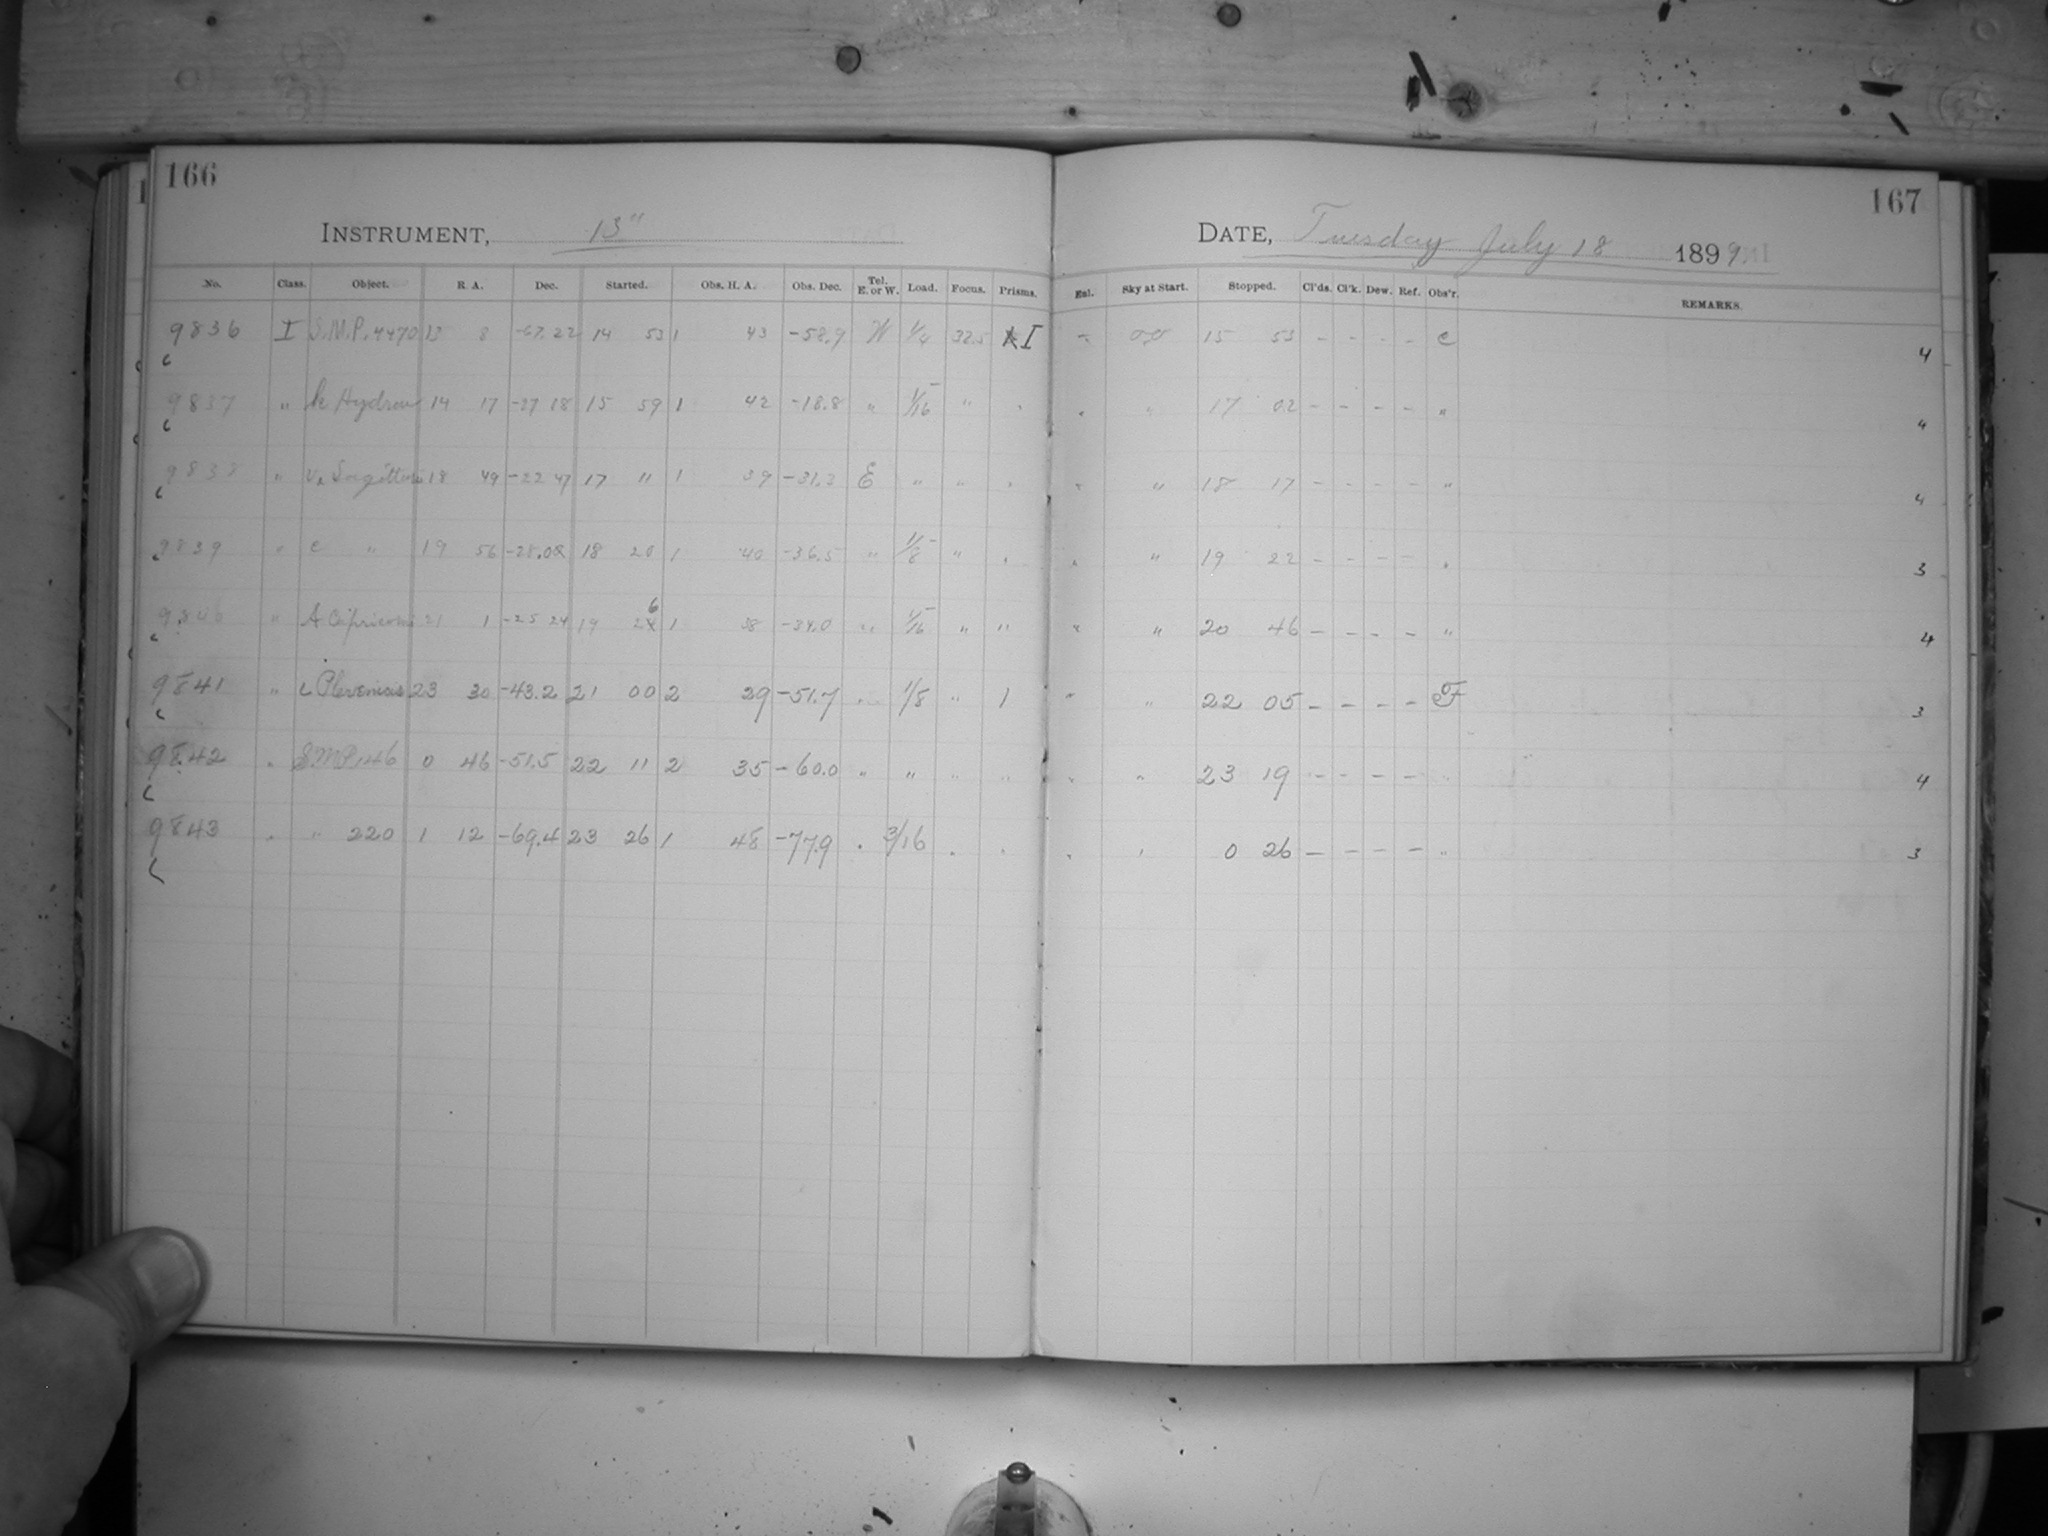 166
INSTRUMENT, 13"
No. Class. Object. R. A. Dec. Started. Obs. H. A. Obs. Dec. Tel. E. or W. Load. Focus. Prisms.
9836 I S.M.P. 4470 13 8 -67.22 14 53 1 43 -58.9 W 1/4 32.5 I
9837 " k Hydrae 14 17 -27 18 15 59 1 42 -18.8 " 1/16 "
9838 " Sagittarii 18 49 -22 47 17 11 1 39 -31.3 E " "
9839 " c " 19 56 -28.02 18 20 1 40 -36.5 " 1/8 "
9840 " A Capricorni 21 1 -25 24 19 26 1 38 -34.0 " 1/16 " "
9841 " 23 30 -43.2 21 00 2 29 -51.7 " 1/8 " 1
9842 " S.M.P. 146 0 46 -51.5 22 11 2 35 -60.0 " " " "
9843 " " 220 1 12 -69.4 23 26 1 48 -77.9 " 3/16 " "
167
DATE, Tuesday July 18 1899.
Sky at Start. Stopped. Cl'ds. Cl'k. Dew. Ref. Obs'r. REMARKS.
15 53 - - - - C 4
" " 17 02 - - - - " 4
" " 18 17 - - - - " 4
" " 19 22 - - - - " 3
" " 20 46 - - - - " 4
" " 22 05 - - - - F 3
" " 23 19 - - - - " 4
" " 0 26 - - - - " 3